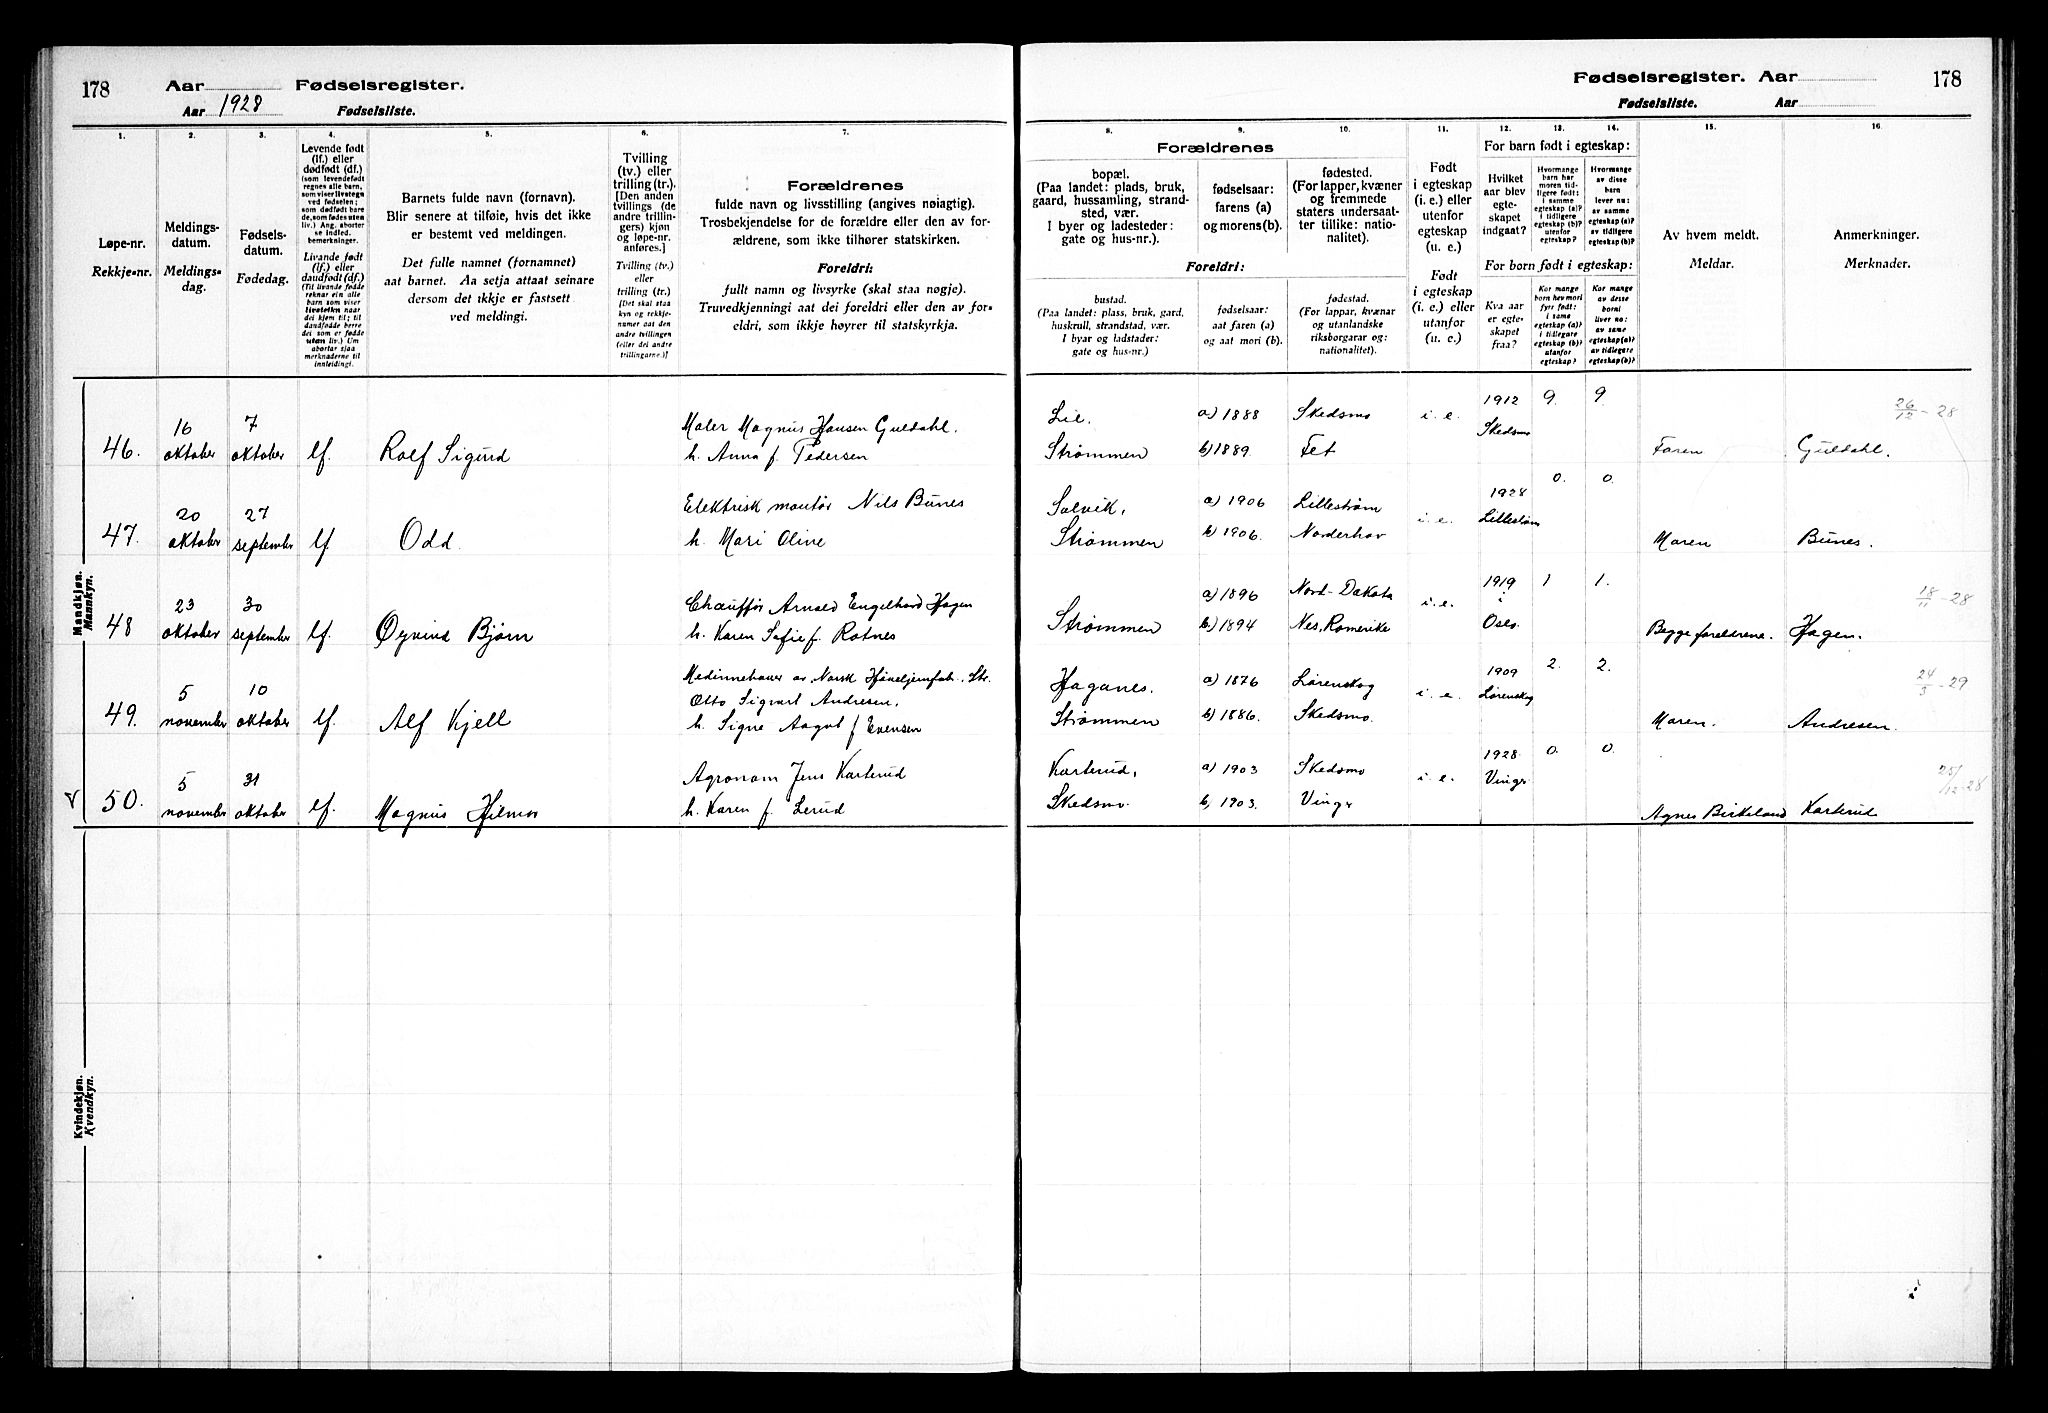 178
Aar
Fødselsregister.
Aar 1928
Fødselsliste.
Fødselsregister. Aar
178
Fødselsliste.
Aar
1.
2.
3.
4.
5.
6.
7.
8.
9.
10.
11.
12.
13.
14.
15.
16.
Løpe-nr.
Rekkje-nr.
Meldings-
datum.
Meldings-
dag.
Fødsels-
datum.
Fødedag.
Levende født
(lf.) eller
dødfødt (df.)
(som levendefødt
regnes alle barn,
som viser livstegn
ved fødselen;
som dødfødt bare
de, som fødes uten
liv.) Ang. aborter
se indled.
bemerkninger.
Livande født
(lf.) eller
daudfødt (df.)
(Til livande fødde
reknar ein alle
barn som viser
livsteikn naar
dei kjem til; til
daudfødde berre
dei som er fødde
utan liv.) Um
abortar sjaa
merknaderne til
innleidingi.
Barnets fulde navn (fornavn).
Blir senere at tilføie, hvis det ikke
er bestemt ved meldingen.
Det fulle namnet (fornamnet)
aat barnet. Aa setja attaat seinare
dersom det ikkje er fastsett
ved meldingi.
Tvilling
(tv.) eller
trilling (tr.).
[Den anden
tvillings (de
andre trillin-
gers) kjøn
og løpe-nr.
anføres.]
Tvilling (tv.)
eller
trilling (tr.)
[Det skal staa
kyn og rekkje-
numer aat den
andre tvillingen
(eller dei andre
trillingarne.)]
Forældrenes
fulde navn og livsstilling (angives nøiagtig).
Trosbekjendelse for de forældre eller den av for-
ældrene, som ikke tilhører statskirken.
Foreldri:
fullt namn og livsyrke (skal staa nøgje).
Truvedkjenningi aat dei foreldri eller den av for-
eldri, som ikkje høyrer til statskyrkja.
Forældrenes
bopæl.
(Paa landet: plads, bruk,
gaard, hussamling, strand-
sted, vær.
I byer og ladesteder:
gate og hus-nr.).
fødselsaar:
farens (a)
og morens (b).
fødested.
(For lapper, kvæner
og fremmede
staters undersaat-
ter tillike: natio-
nalitet).
Foreldri:
bustad.
(Paa landet: plass, bruk, gard,
huskrull, strandstad, vær.
I byar og ladstader:
gate og hus-nr.)
fødselsaar:
aat faren (a)
og aat mori (b).
fødestad.
(For lappar, kvænar
og utanlandske
riksborgarar og:
nationalitet).
Født
i egteskap
(i. e.) eller
utenfor
egteskap
(u. e.)
Født
i egteskap
(i. e.) eller
utanfor
(u. e.)
For barn født i egteskap:
Hvilket
aar blev
egte-
skapet
indgaat?
Hvormange
barn har
moren tid-
ligere født:
i samme
egteskap (a)?
i tidligere
egteskap (b)?
utenfor
egteskap?
Hvormange
av disse
barn
lever nu:
av samme
egteskap (a)?
av tidligere
egteskap (b)?
For born født i egteskap:
Kva aar
er egte-
skapet
fraa?
Kor mange
born hev mori
fyrr født:
i same
egteskap (a)?
i tidlegare
egteskap (b)?
utanfor
egteskap?
Kor mange
av desse
borni
liver no:
av same
egteskap (a)?
av tidlegare
egteskap (b)?
Av hvem meldt.
Meldar.
Anmerkninger.
Merknader.
Mandkjøn.
Mannkyn.
46. 16 oktober 7 oktober lf. Rolf Sigurd
Maler Magnus Hansen Guldahl.
h. Anna f. Pedersen
Lie. a) 1888 Skedsmo i. e. 1912 9. 9. 26/12-28
Strømmen b) 1889. Fet Skedsmo Faren Guldahl.
47. 20 oktober 27 september lf Odd.
Elektrisk montør Nils Bunes
h. Mari Oline
Solvik, a) 1906 Lillestrøm i. e. 1928 0. 0.
Strømmen b) 1906. Norderhov Lillestrøm Moren Bunes.
48 23 oktober 30 september lf. Øyvind Bjørn
Chauffør Arnold Engelhard Hagen
h. Karen Sofie f. Rotnes
a) 1896 Nord-Dakota i. e. 1919 1 1. 18/11-28
Strømmen b.) 1894 Nes, Romerike i Oslo. Begge foreldrene. Hagen.
49. 5 november 10 oktober lf. Alf Kjell
Otto Sigvart Andresen.
h. Signe Aagot f Evensen
Haganes. a) 1876 Lørenskog i. e. 1909 2. 2. 24/3-29
Strømmen b) 1886. Skedsmo. Lørenskog Moren. Andresen.
50. 5 november 31 oktober lf. Magnus Hilmar
Agronom Jens Karterud
h. Karen f. Lerud
Karterud, a) 1903 Skedsmo i. e. 1928. 0. 0. 25/12-28
Skedsmo. b, 1903. Vinger Vinger Agnes Birkeland Karterud
Kvindekjøn.
Kvendkyn.